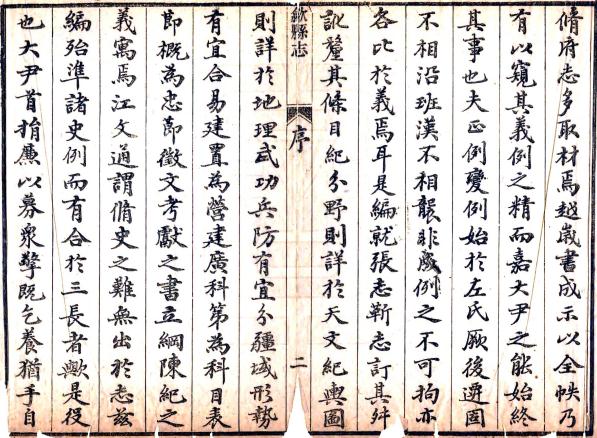 脩府志多取材焉越歲書成示以全帙乃
有以窺其義例之精而嘉大尹之能始終
其事也夫正例變例始於左氏厥後遷固
不相沿班漢不相襲非例之不可拘亦
各比於義焉耳是編就張志靳志訂其舛
訛釐其條目紀分野則詳於天文紀輿圖
歙縣志
序
二
則詳於地理武功兵防有宜分疆域形勢
有宜合易建置為營建廣科第為科目表
節概為忠節徵文考獻之書立綱陳紀之
義寓焉江文通謂脩史之難無出於志茲
編殆準諸史例而有合於三長者歟是役
也大尹首捐廉以募衆擎既乞養猶手自